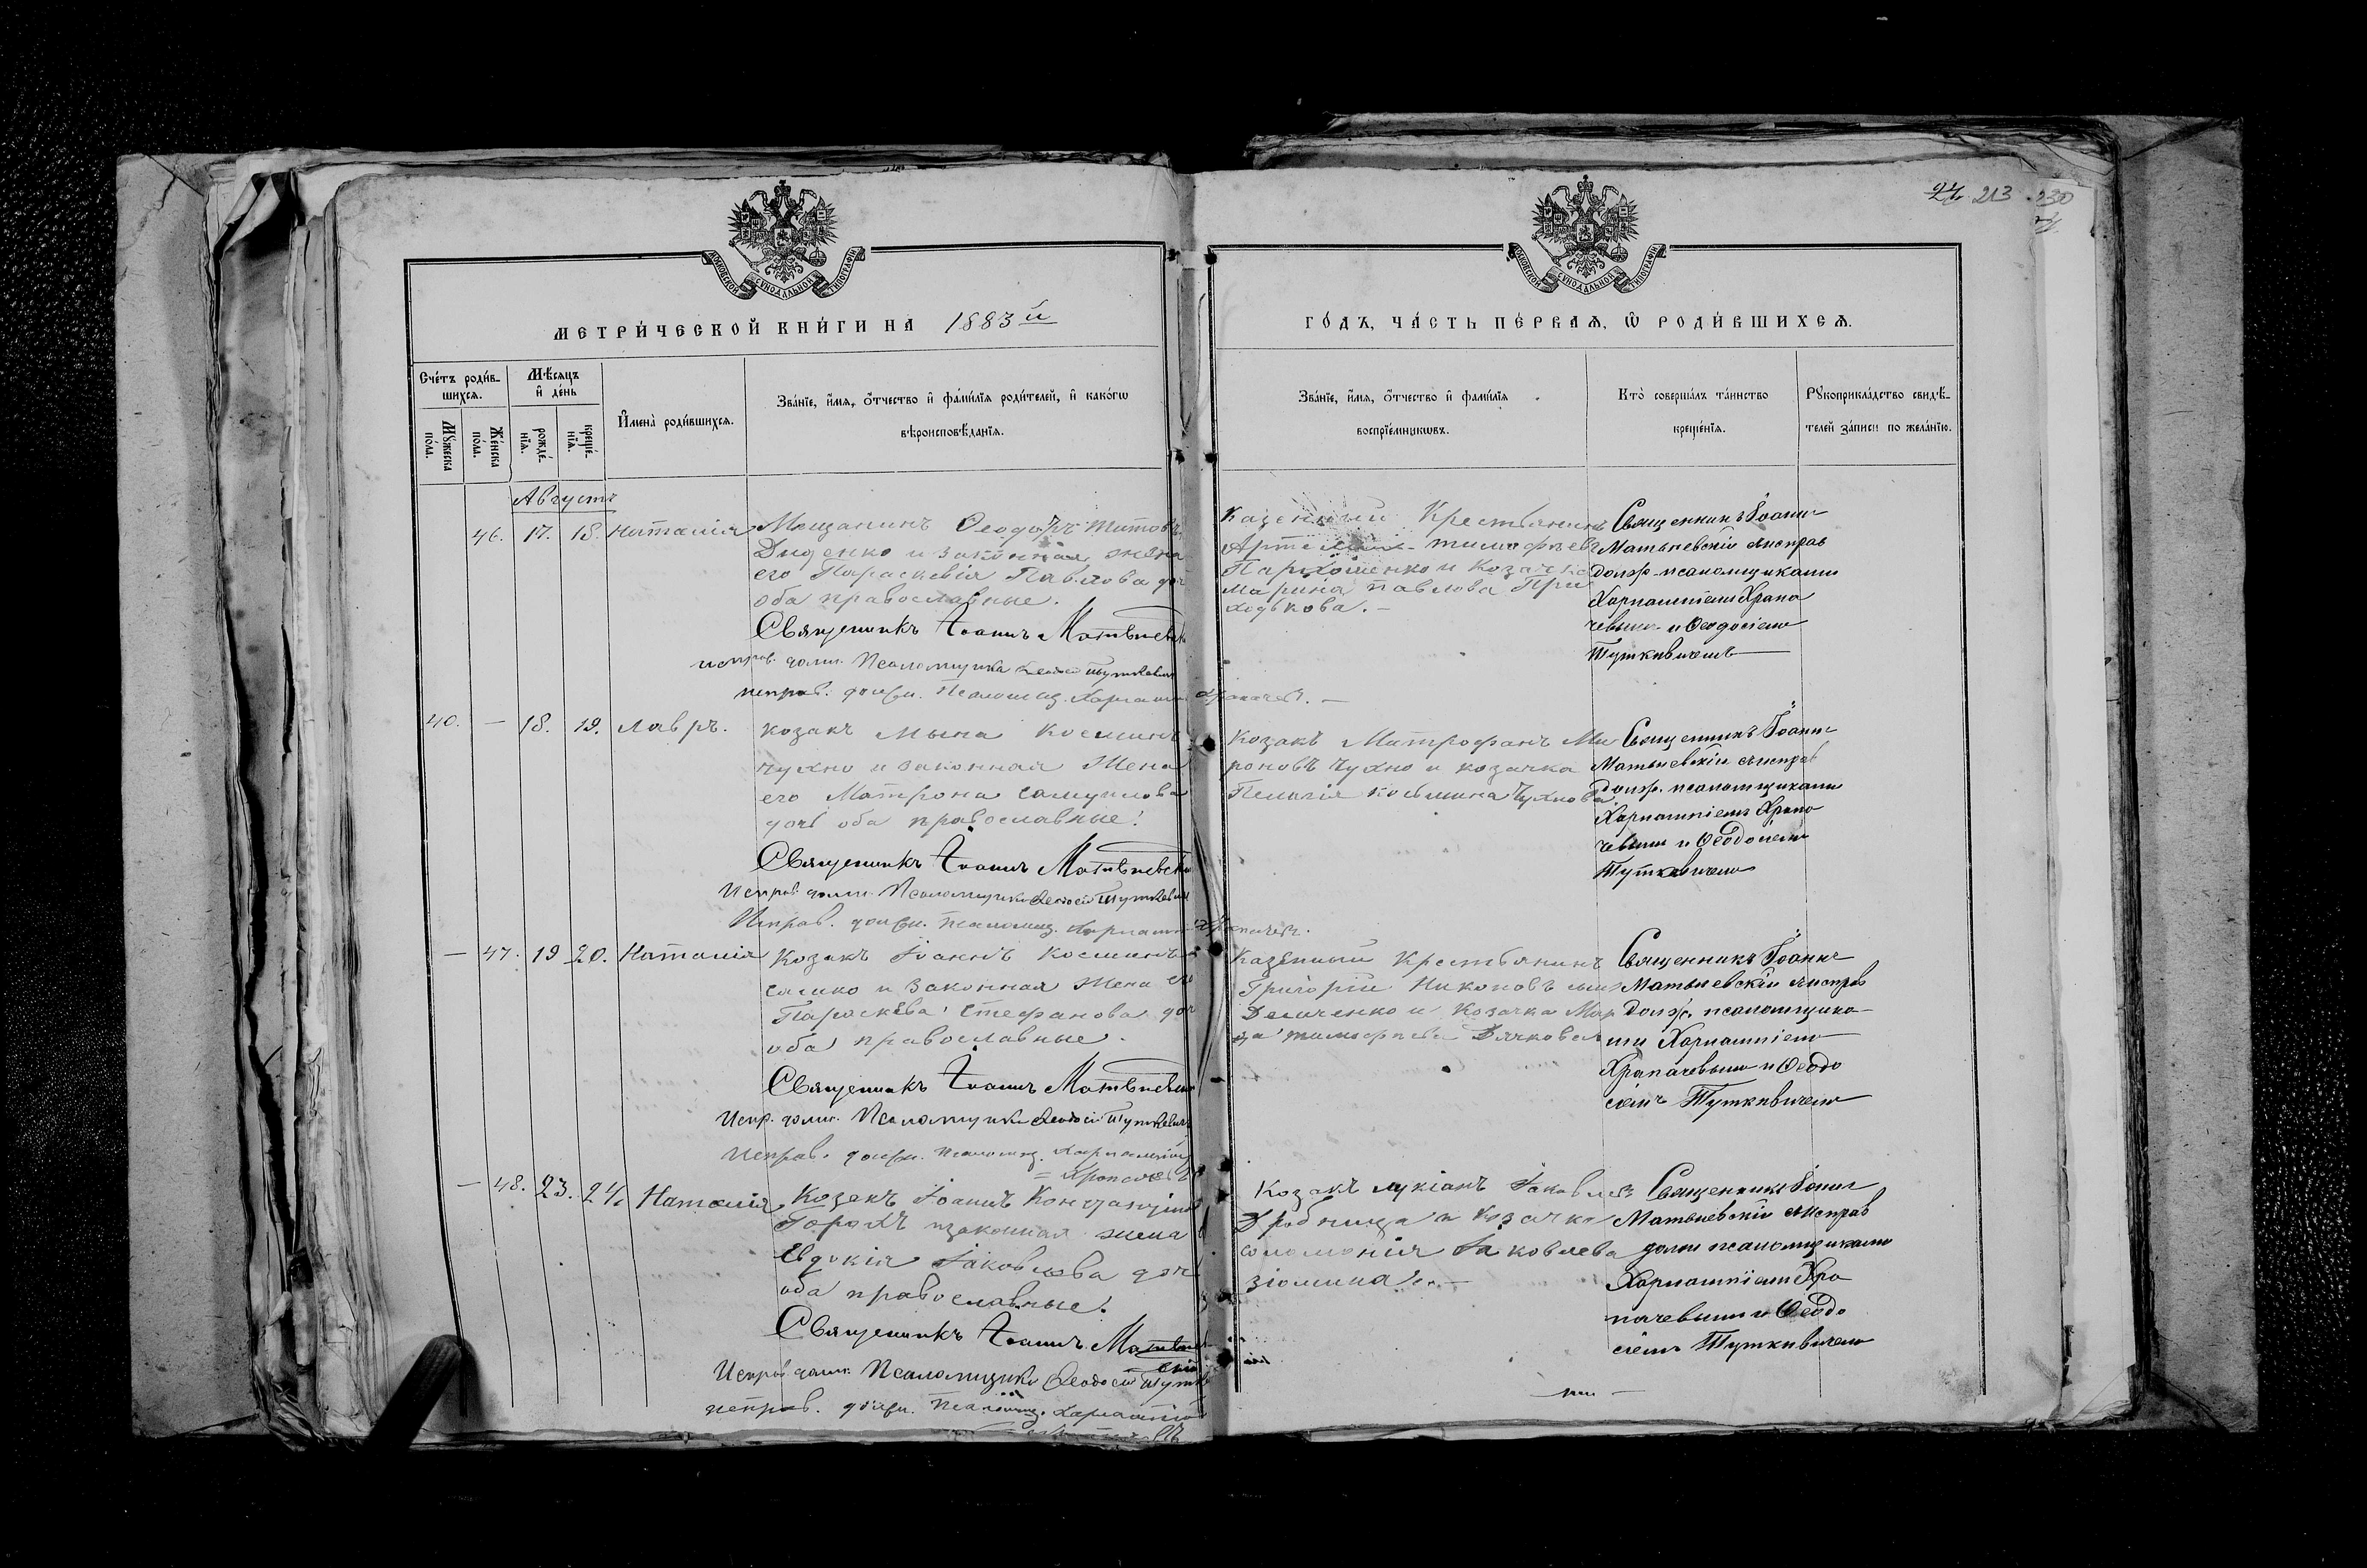 24 213 230
МОСКОВСКОЙ СѴНОДАЛЬНОЙ ТИПОГРАФІИ
МОСКОВСКОЙ СѴНОДАЛЬНОЙ ТИПОГРАФІИ
МЕТРИ́ЧЕСКОЙ КНИ́ГИ НА 1883й
ГО́ДЪ, ЧА́СТЬ ПЕ́РВАѦ, Ѡ РОДИ́ВШИХСѦ.
Сче́тъ роди́в-
шихсѧ.
Мꙋ́жеска по́ла.
Же́нска по́ла.
Мѣ́сѧцъ
и҆ де́нь
рожде́-
нїѧ.
креще́-
нїѧ.
И҆мена̀ роди́вшихсѧ.
Зва́нїе, и҆́мѧ, ѻ҆́тчество и҆ фами́лїѧ роди́телей, и҆ како́гѡ
вѣроисповѣ́данїѧ.
Зва́нїе, и҆́мѧ, ѻ҆́тчество и҆ фами́лїѧ
воспрїе́мникѡвъ.
Кто̀ соверша́лъ та́инство
креще́нїѧ.
Рꙋкоприкла́дство свидѣ́-
телей за́писи по жела́нїю.
Августъ
46. 17. 18. Наталія
Мещанинъ Ѳеодоръ Титовъ
Диденко и законная жена
его Параскевія Павлова доч
оба православные.
Священникъ Іоаннъ Матвѣевскі
исправ. долж. Псаломщика Ѳеодосій Туткевич
исправ. долж. Псаломщ. Харлампій Храпачевъ.
Казенный Крестьянинъ
Артемій Тимофѣевъ
Пархоменко и Козачка
Марина Павлова При
ходькова.
Священникъ Іоаннъ
Матвѣевскій съ исправ
долж. псаломщиками
Харлампіемъ Храпа
чевымъ и Ѳеодосіемъ
Туткевичемъ
40. — 18. 19. Лавръ.
Козакъ Мына Косминъ
Чухно и законная жена
его Матрона Самуилова
дочь оба православные.
Священникъ Іоаннъ Матвѣевскі
Исправ. долж. Псаломщика Ѳеодосій Туткевич
Исправ. долж. Псаломщ. Харлампій Храпачевъ.
Козакъ Митрофанъ Ми
роновъ Чухно и козачка
Пелагія Косьмина Чухнова
Священникъ Іоаннъ
Матвѣевскій съ исправ
долж. псаломщиками
Харлампіемъ Храпа
чевымъ и Ѳеодосіемъ
Туткевичемъ
— 47. 19 20. Наталія
Козакъ Іоаннъ Косминъ
и законная жена его
Параскева Стефанова доч
оба православные.
Священникъ Іоаннъ Матвѣевскі
Испр. долж. Псаломщика Ѳеодосій Туткевичъ
Исправ. долж. Псаломщ. Харлампій
Храпачевъ
Казенный Крестьянинъ
Григорій Никоновъ
и Козачка Мар
Тимофѣева Дьякова
Священникъ Іоаннъ
Матвѣевскій съ исправ
долж. псаломщика-
ми Харлампіемъ
Храпачевымъ и Ѳеодо
сіемъ Туткевичемъ
— 48. 23. 24 Наталія
Козакъ Іоаннъ
Горохъ и законная жена
Евдокія Іаковлева доч
оба православные.
Священникъ Іоаннъ Матвѣев
скій
Исправ долж. Псаломщика Ѳеодосій Тутке
исправ. долж. Псаломщ. Харлампій
Козакъ Лукіанъ Іаковлев
Дробница и Козачка
Соломонія Іаковлева
Зіомина.
Священникъ Іоаннъ
Матвѣевскій съ исправ
долж псаломщиками
Харлампіемъ Хра
пачевымъ и Ѳеодо
сіемъ Туткевичемъ